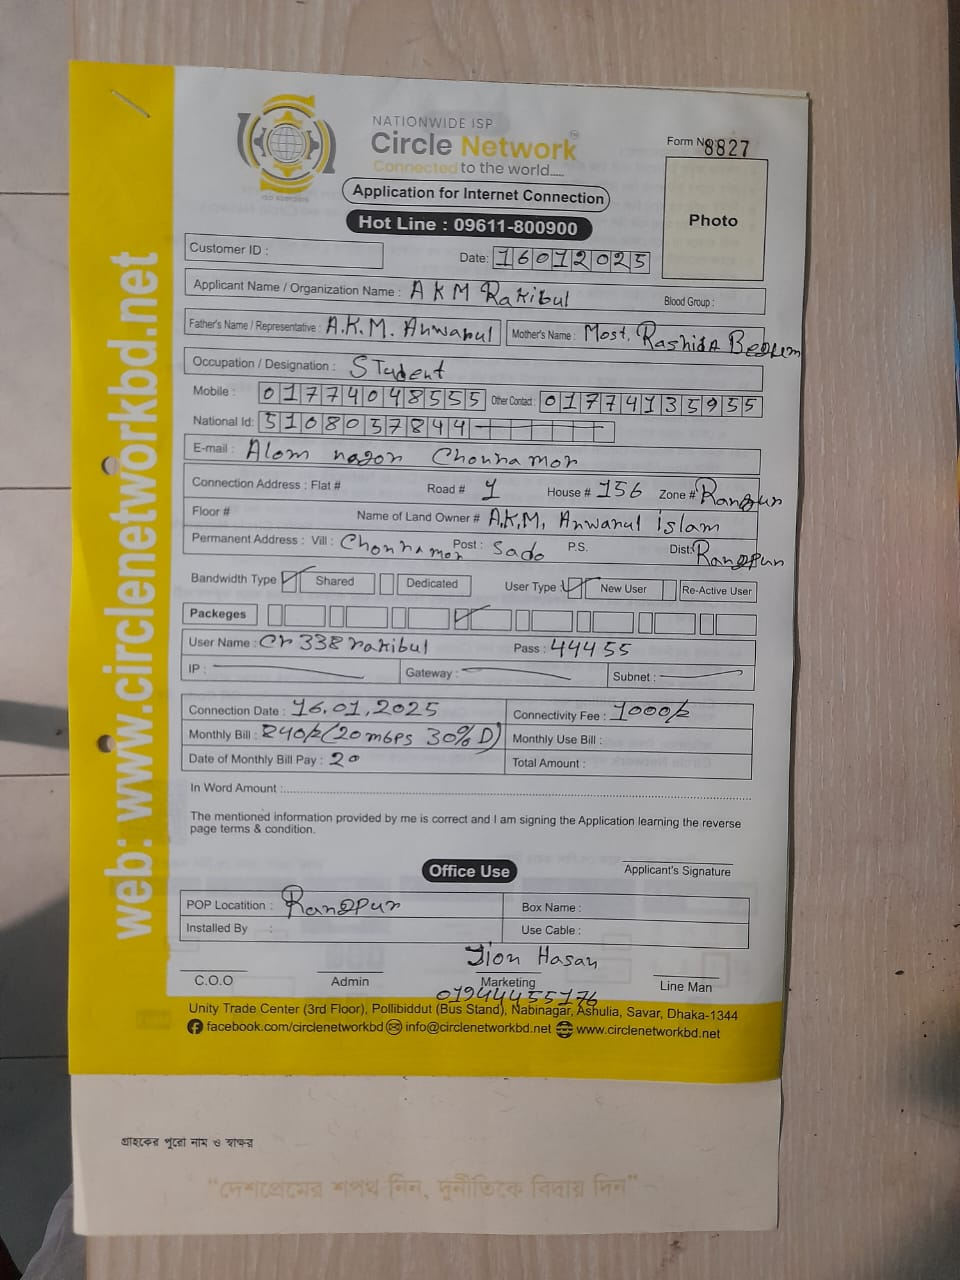 NATIONWIDE ISP
Circle Network™
Connected to the world.....
Form No 8827
Photo
Application for Internet Connection
Hot Line : 09611-800900
Customer ID :
Date: 16012025
Applicant Name / Organization Name : AKM Rakibul Blood Group :
Father's Name / Representative : A.K.M. Anwarul Mother's Name : Most. Rashida Begum
Occupation / Designation : STudent
Mobile : 01774048555 Other Contact : 01774135955
National Id: 5108037844
E-mail : Alom nagor Chonnamor
Connection Address : Flat # Road # 1 House # 156 Zone # Rangpur
Floor # Name of Land Owner # A.K.M. Anwarul islam
Permanent Address : Vill : Chonnamor Post : Sado P.S. Dist: Rangpur
Bandwidth Type Shared Dedicated User Type : New User Re-Active User
Packeges
User Name : cr338rakibul Pass : 44455
IP : Gateway : Subnet :
Connection Date : 16.01.2025 Connectivity Fee : 1000/=
Monthly Bill : 840/= (20 mbps 30% D) Monthly Use Bill :
Date of Monthly Bill Pay : 20 Total Amount :
In Word Amount :
The mentioned information provided by me is correct and I am signing the Application learning the reverse
page terms & condition.
Applicant's Signature
Office Use
POP Locatition : Rangpur Box Name :
Installed By : Use Cable :
Hasan
C.O.O Admin Marketing Line Man
01944455176
Unity Trade Center (3rd Floor), Pollibiddut (Bus Stand), Nabinagar, Ashulia, Savar, Dhaka-1344
facebook.com/circlenetworkbd info@circlenetworkbd.net www.circlenetworkbd.net
web: www.circlenetworkbd.net
গ্রাহকের পুরো নাম ও স্বাক্ষর
“দেশপ্রেমের শপথ নিন, দুর্নীতিকে বিদায় দিন”